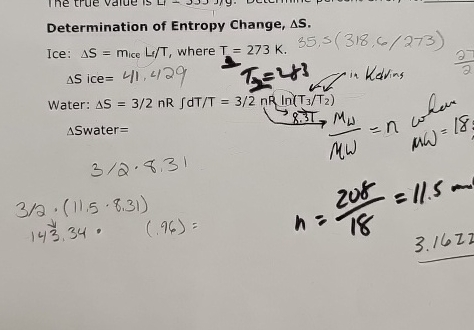 The true value is Lf = 333 J/g. Determine percent error
Determination of Entropy Change, ΔS.
Ice: ΔS = mice Lf/T, where T = 273 K. 35.5(318.6/273)
ΔS ice= 41.429
T2=283
in Kelvins
Water: ΔS = 3/2 nR ∫dT/T = 3/2 nR ln(T3/T2)
8.31
ΔSwater=
Mw/MW = n where MW = 18
3/2 · 8.31
3/2 · (11.5 · 8.31)
143.34 · (.96) =
n = 208/18 = 11.5
3.1622